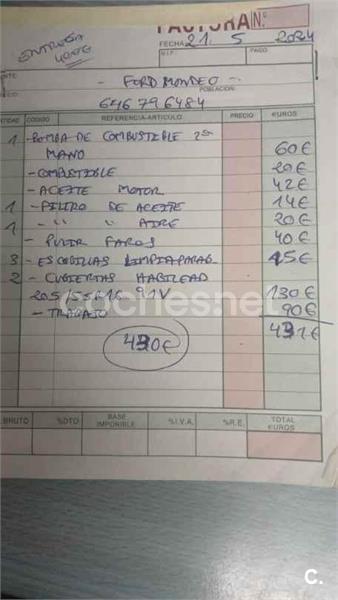 ENTREGA 400€
FACTURA N.º
FECHA 21. 5 2024
N.I.F. PAGO
- FORD MONDEO -
POBLACIÓN
646796484
CÓDIGO REFERENCIA-ARTÍCULO PRECIO EUROS
1 - BOMBA DE COMBUSTIBLE 2ª
MANO 60€
- COMBUSTIBLE 20€
- ACEITE MOTOR 42€
1 - FILTRO DE ACEITE 14€
1 - " " AIRE 20€
- PULIR FAROS 40€
3 - ESCOBILLAS LIMPIAPARAB 15€
2 - CUBIERTAS HABILEAD
205/55R16 91V 130€
- TRABAJO 90€
431€
430€
coches.net
BRUTO %DTO BASE IMPONIBLE %I.V.A. %R.E. TOTAL EUROS
C.